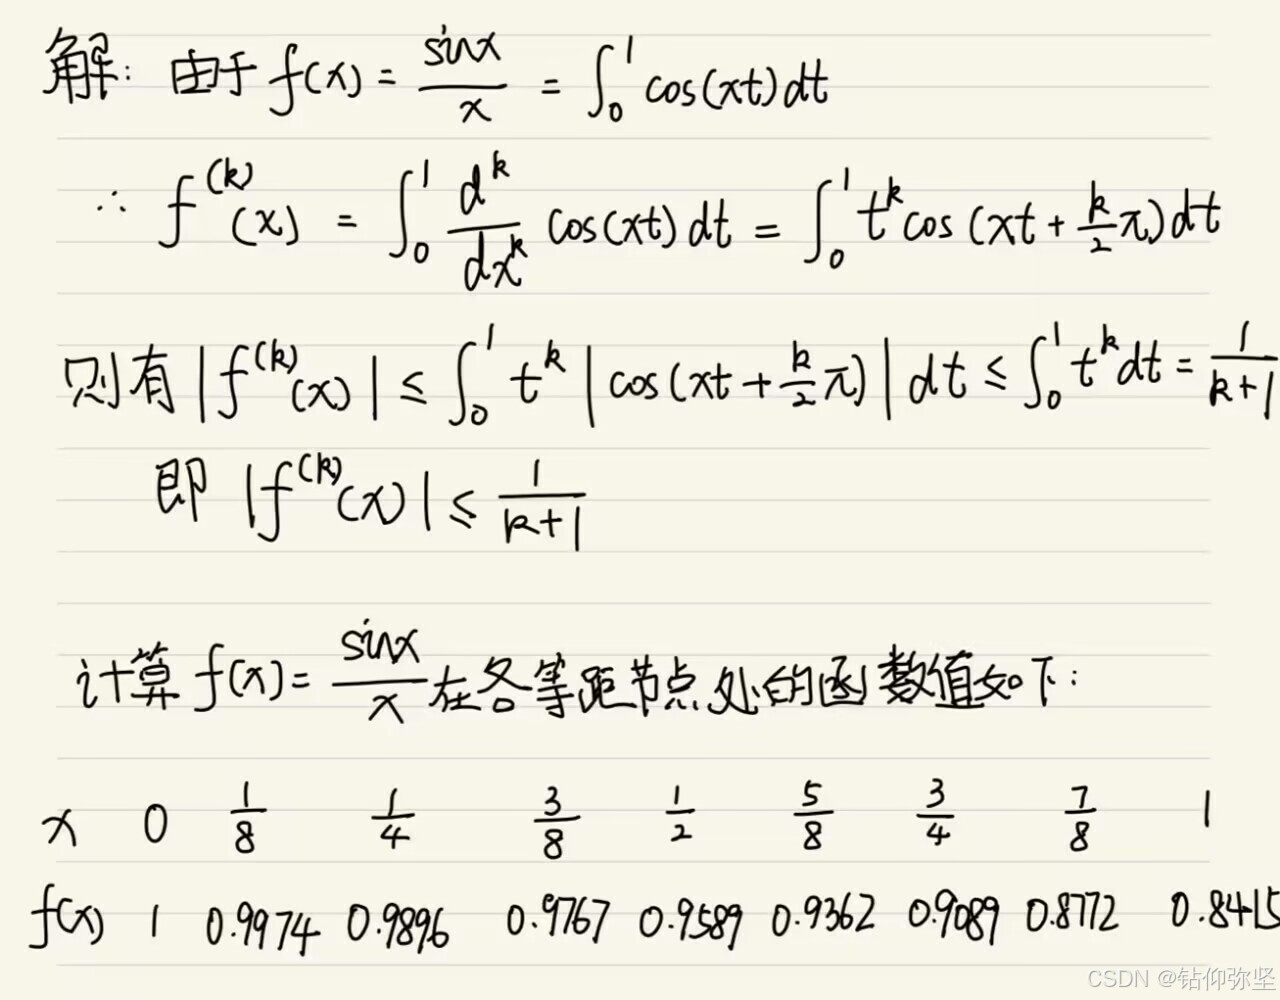 解：由于 f(x) = sinx/x = ∫₀¹ cos(xt)dt
∴ f⁽ᵏ⁾(x) = ∫₀¹ dᵏ/dxᵏ cos(xt)dt = ∫₀¹ tᵏ cos(xt + k/2 π)dt
则有 |f⁽ᵏ⁾(x)| ≤ ∫₀¹ tᵏ |cos(xt + k/2 π)| dt ≤ ∫₀¹ tᵏ dt = 1/(k+1)
即 |f⁽ᵏ⁾(x)| ≤ 1/(k+1)
计算 f(x) = sinx/x 在各等距节点处的函数值如下：
x 0 1/8 1/4 3/8 1/2 5/8 3/4 7/8 1
f(x) 1 0.9974 0.9896 0.9767 0.9589 0.9362 0.9089 0.8772 0.8415
CSDN @钻仰弥坚